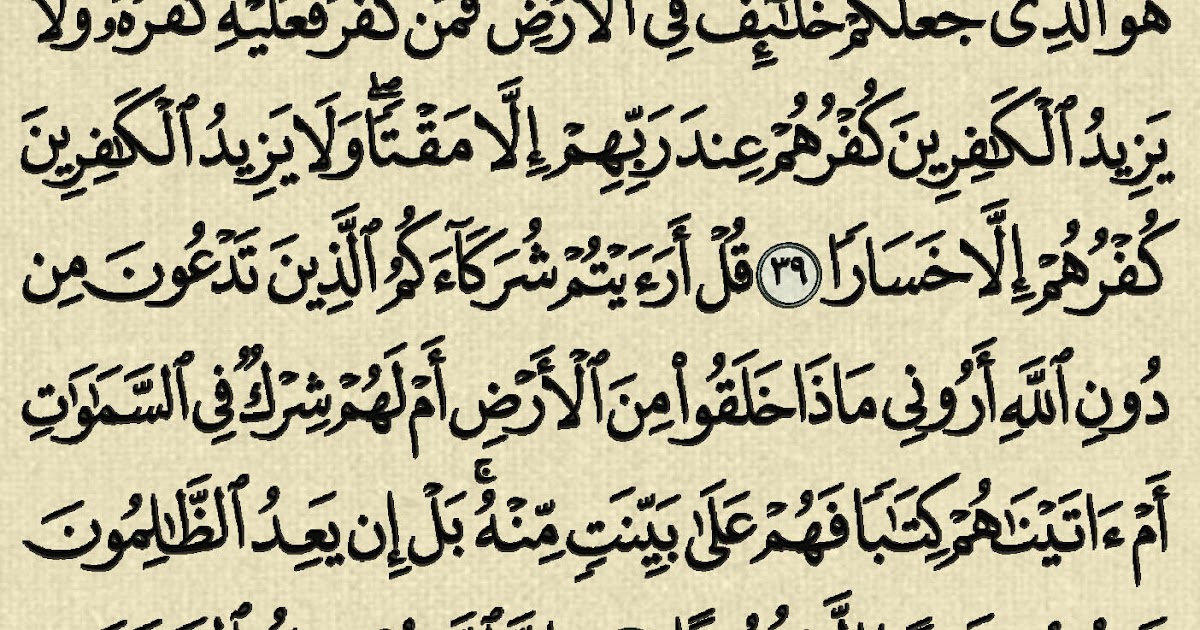 هُوَ ٱلَّذِى جَعَلَكُمْ خَلَٰٓئِفَ فِى ٱلْأَرْضِ فَمَن كَفَرَ فَعَلَيْهِ كُفْرُهُۥ وَلَا
يَزِيدُ ٱلْكَٰفِرِينَ كُفْرُهُمْ عِندَ رَبِّهِمْ إِلَّا مَقْتًاۖ وَلَا يَزِيدُ ٱلْكَٰفِرِينَ
كُفْرُهُمْ إِلَّا خَسَارًا ٣٩ قُلْ أَرَءَيْتُمْ شُرَكَآءَكُمُ ٱلَّذِينَ تَدْعُونَ مِن
دُونِ ٱللَّهِ أَرُونِى مَاذَا خَلَقُوا۟ مِنَ ٱلْأَرْضِ أَمْ لَهُمْ شِرْكٌ فِى ٱلسَّمَٰوَٰتِ
أَمْ ءَاتَيْنَٰهُمْ كِتَٰبًا فَهُمْ عَلَىٰ بَيِّنَتٍ مِّنْهُۚ بَلْ إِن يَعِدُ ٱلظَّٰلِمُونَ